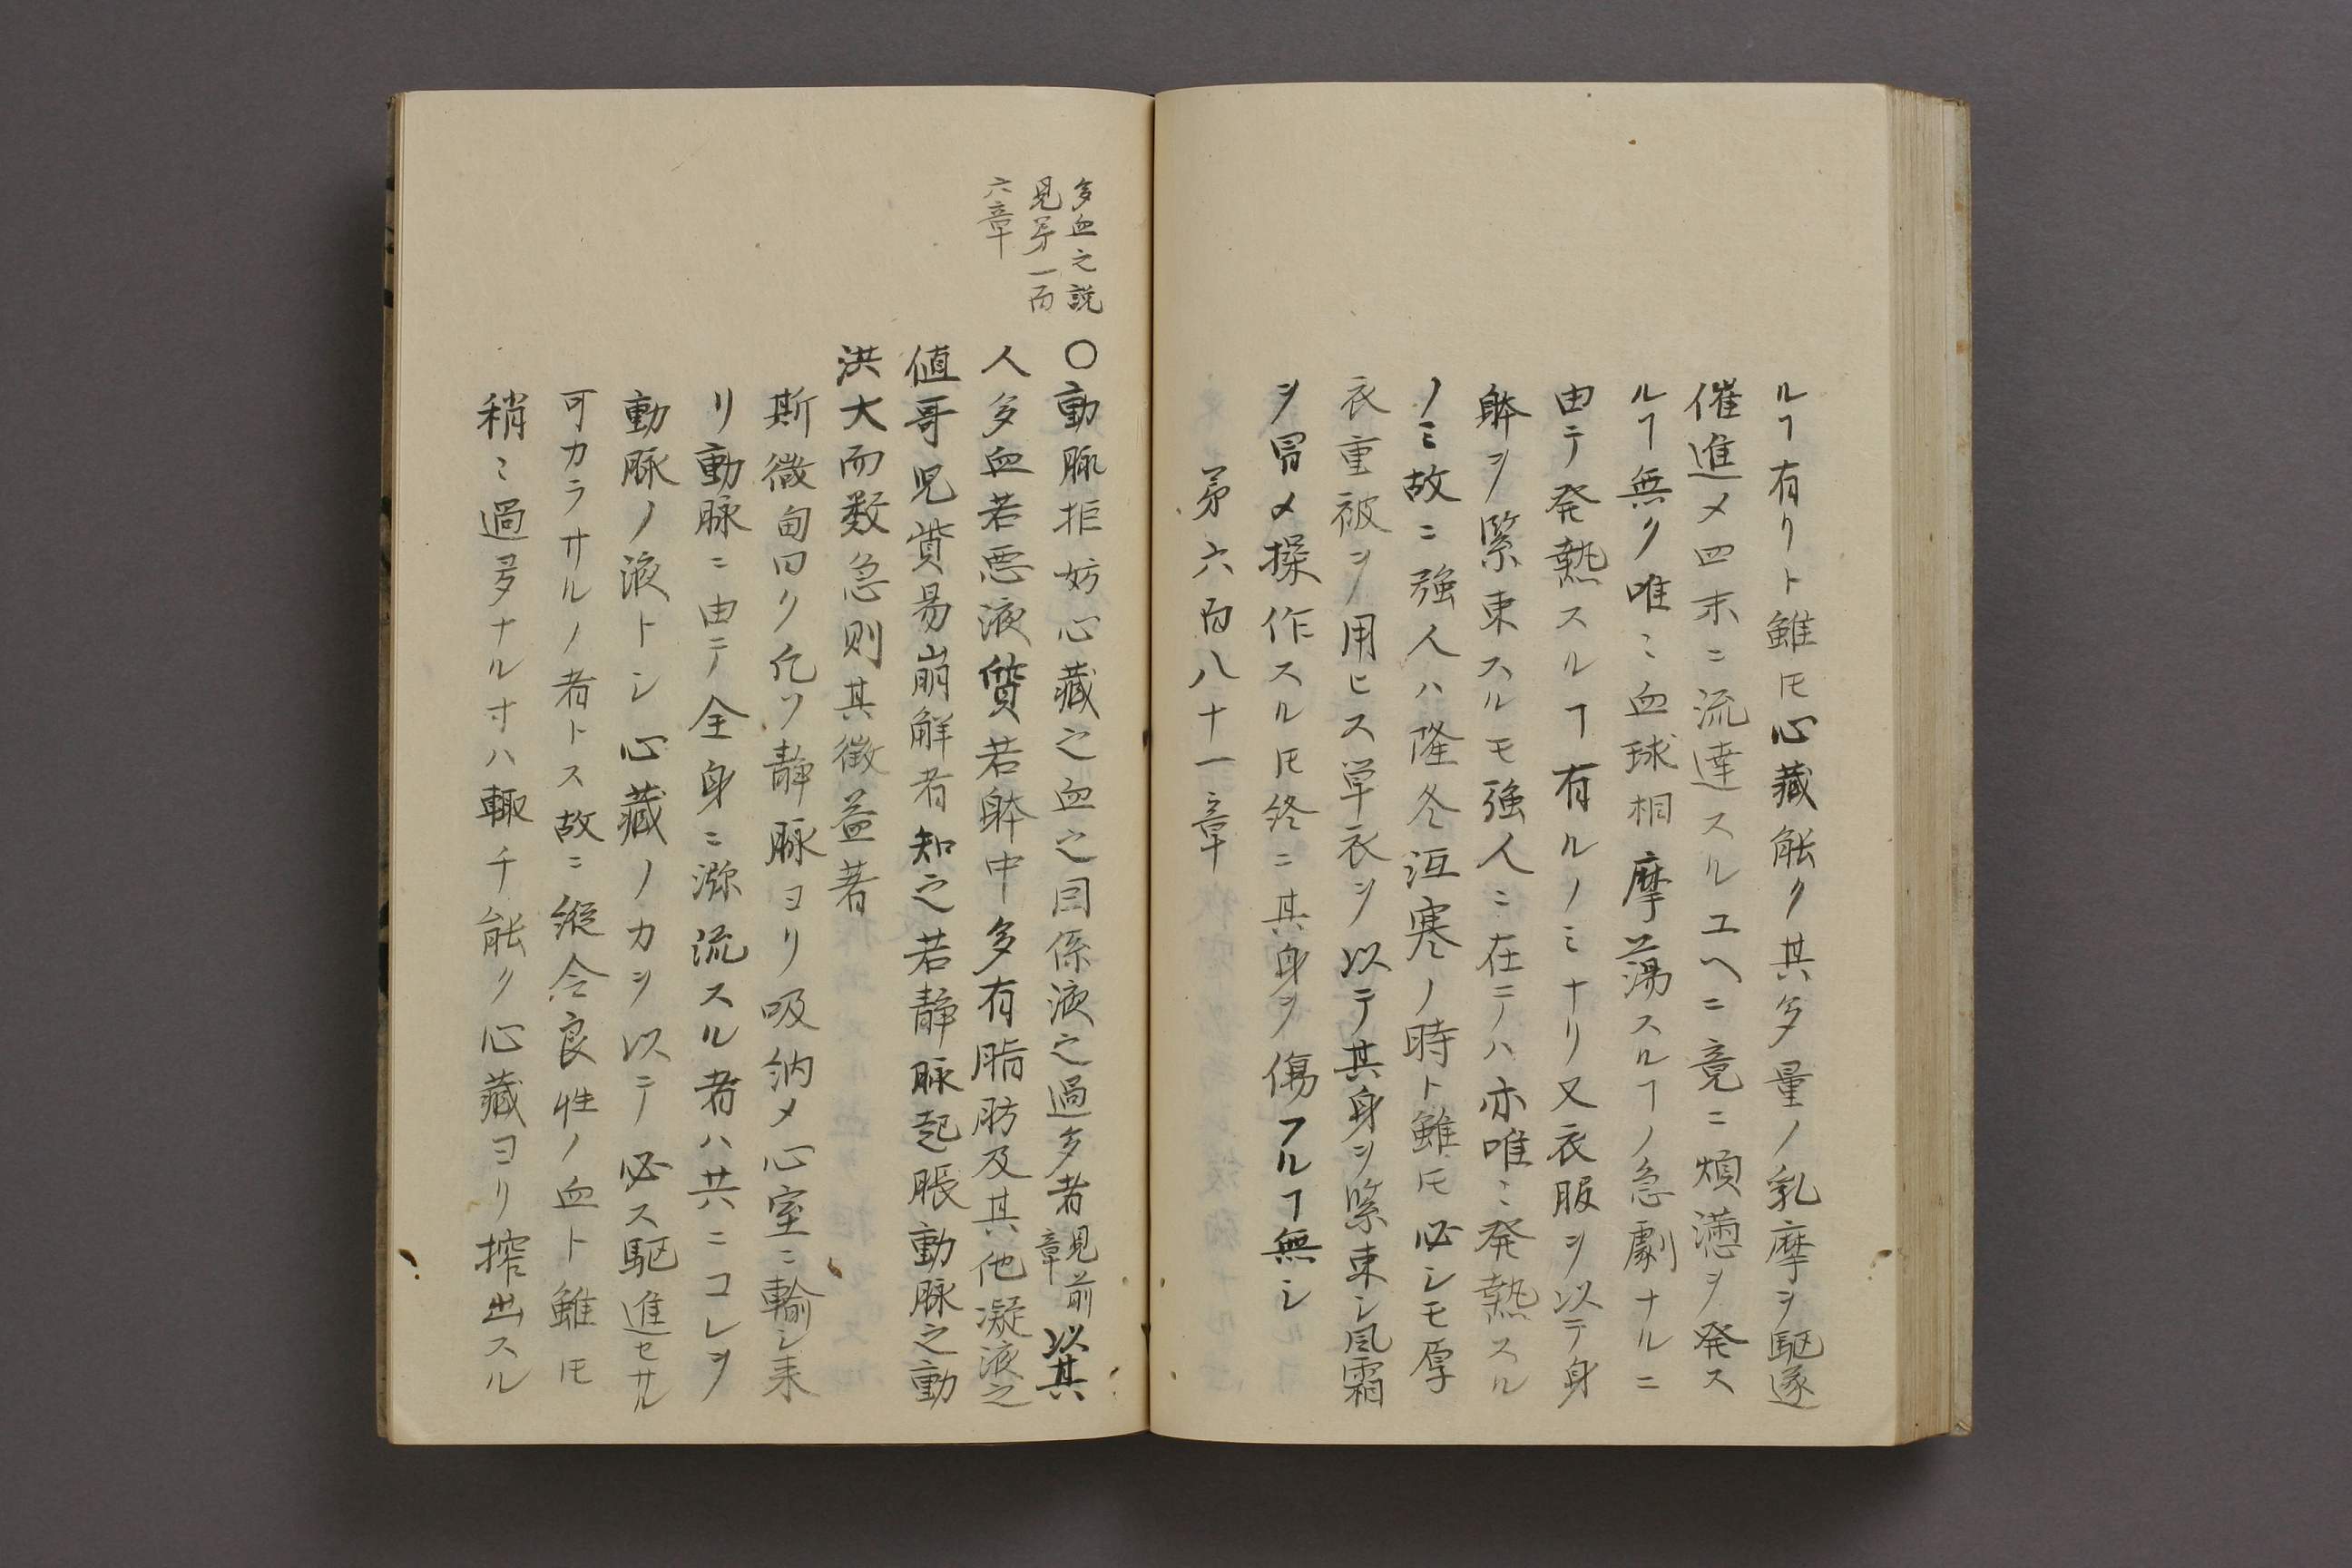 ルヿ有リト雖𪜈心藏能ク其多量ノ乳摩ヲ駆逐
催進〆四末ニ流達スルユヘニ竟ニ煩懣ヲ発ス
ルヿ無ク唯ミ血球相摩蕩スルヿノ急劇ナルニ
由テ発熱スルヿ有ルノミナリ又衣服ヲ以テ身
躰ヲ緊束スルモ強人ニ在テハ亦唯ミ発熱スル
ノミ故ニ強人ハ隆冬冱寒ノ時ト雖𪜈必シモ厚
衣重被ヲ用ヒス単衣ヲ以テ其身ヲ緊束シ風霜
ヲ冒〆操作スル𪜈終ニ其身ヲ傷フルヿ無シ
第六百八十一章
多血之説
見第一百
六章
〇動脈拒妨心藏之血之因係液之過多者見前章以其
人多血若悪液質若躰中多有脂肪及其他凝液之
値哥児貲易崩解者知之若静脈起脹動脈之動
洪大而数急則其徴益著
斯微甸曰ク凢ソ静脈ヨリ吸納〆心室ニ輸シ来
リ動脈ニ由テ全身ニ瀰流スル者ハ共ニコレヲ
動脈ノ液トシ心藏ノカヲ以テ必ス駆進セサル
可カラサルノ者トス故ニ縦令良性ノ血ト雖𪜈
稍ミ過多ナルオハ輙チ能ク心藏ヨリ搾出スル